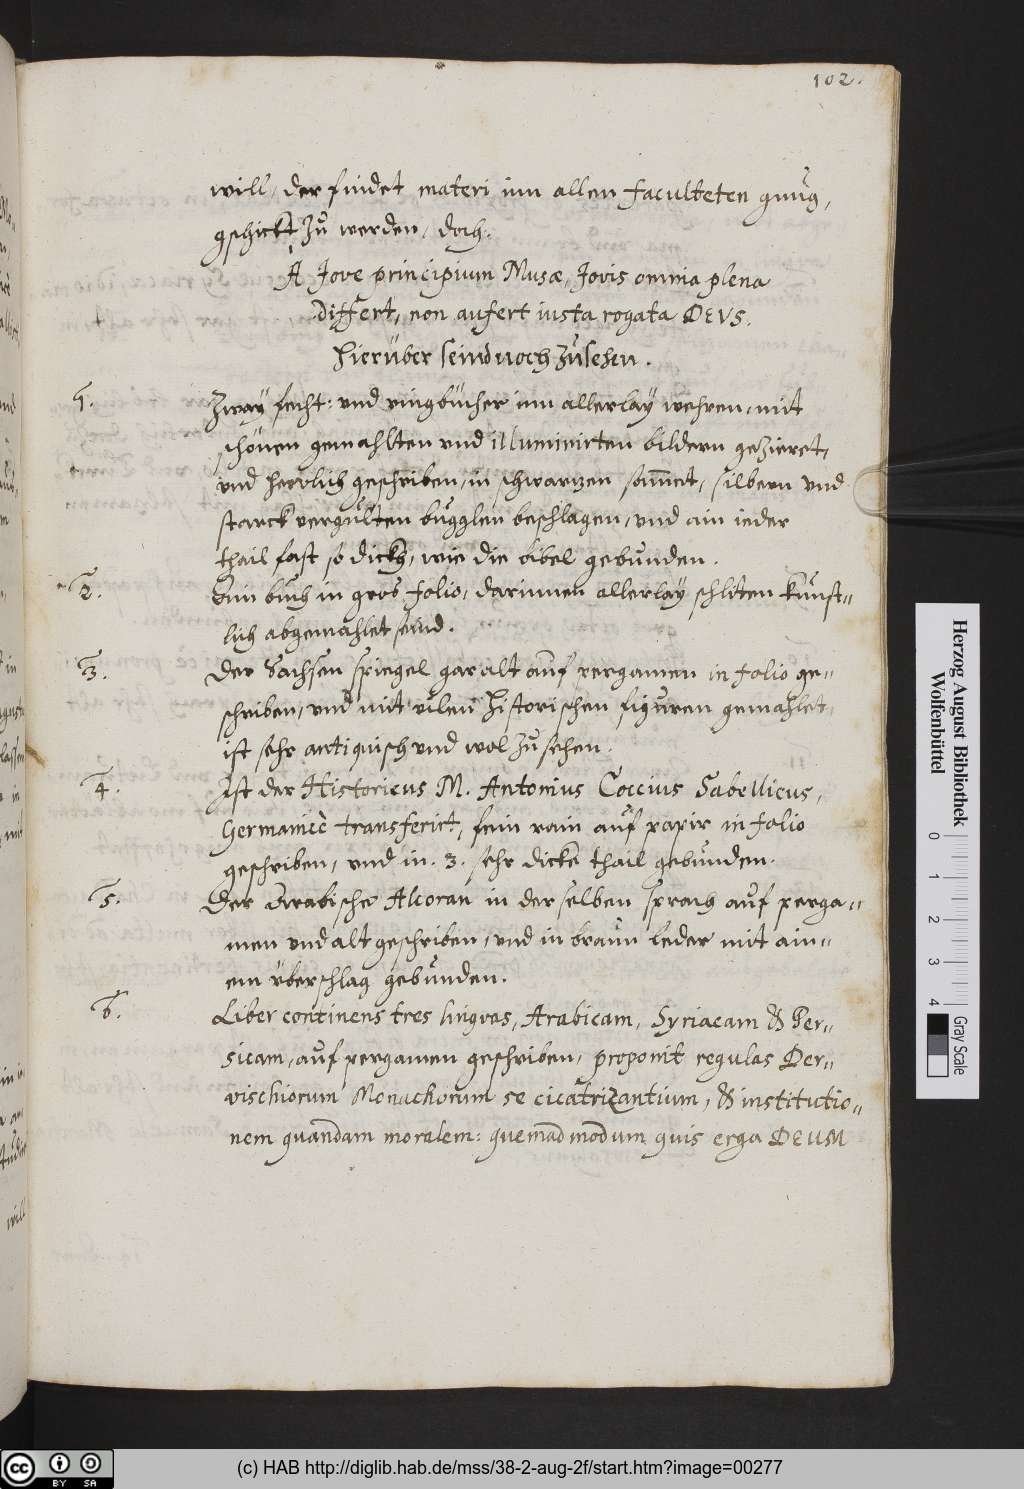 102.
will, der findet materi inn allen faculteten gnug,
gschickt zů werden, doch.
A Jove principium Musæ, Jovis omnia plena
differt, non aufert iusta rogata DEVS.
Hierüber seind noch zůsehen.
1. Zway fecht: und ringbücher inn allerlay wehren, mit
schönen gemahlten und illuminirten bildern gezieret,
und herrlich geschriben, in schwartzen sammet, silbern und
starck vergulten bugglen beschlagen, und ain ieder
thail fast so dickh, wie die bibel gebunden.
2. Ein bůch in gros folio, darinnen allerlay schliten kůnst=
lich abgemahlet seind.
3. Der Sachsen spiegel gar alt auf pergamen in folio ge=
schriben, und mit vilen historischen figuren gemahlet,
ist sehr antiquisch und wol zů sehen.
4. Ist der Historicus M. Antonius Coccius Sabellicus,
Germanicè transferirt, fein rain auf papir in folio
geschriben, und in .3. sehr dicke thail gebunden.
5. Der Arabische Alcoran in derselben sprach auf perga=
men und alt geschriben, und in braun leder mit ain=
em überschlag gebunden.
6. Liber continens tres linguas, Arabicam, Syriacam & Per=
sicam, auf pergamen geschriben, proponit regulas Der=
vischiorum Monachorum se cicatrizantium, & institutio=
nem quandam moralem: quemadmodum quis erga DEUM
Herzog August Bibliothek
Wolfenbüttel
0 1 2 3 4
Gray Scale
cc BY SA
(c) HAB http://diglib.hab.de/mss/38-2-aug-2f/start.htm?image=00277